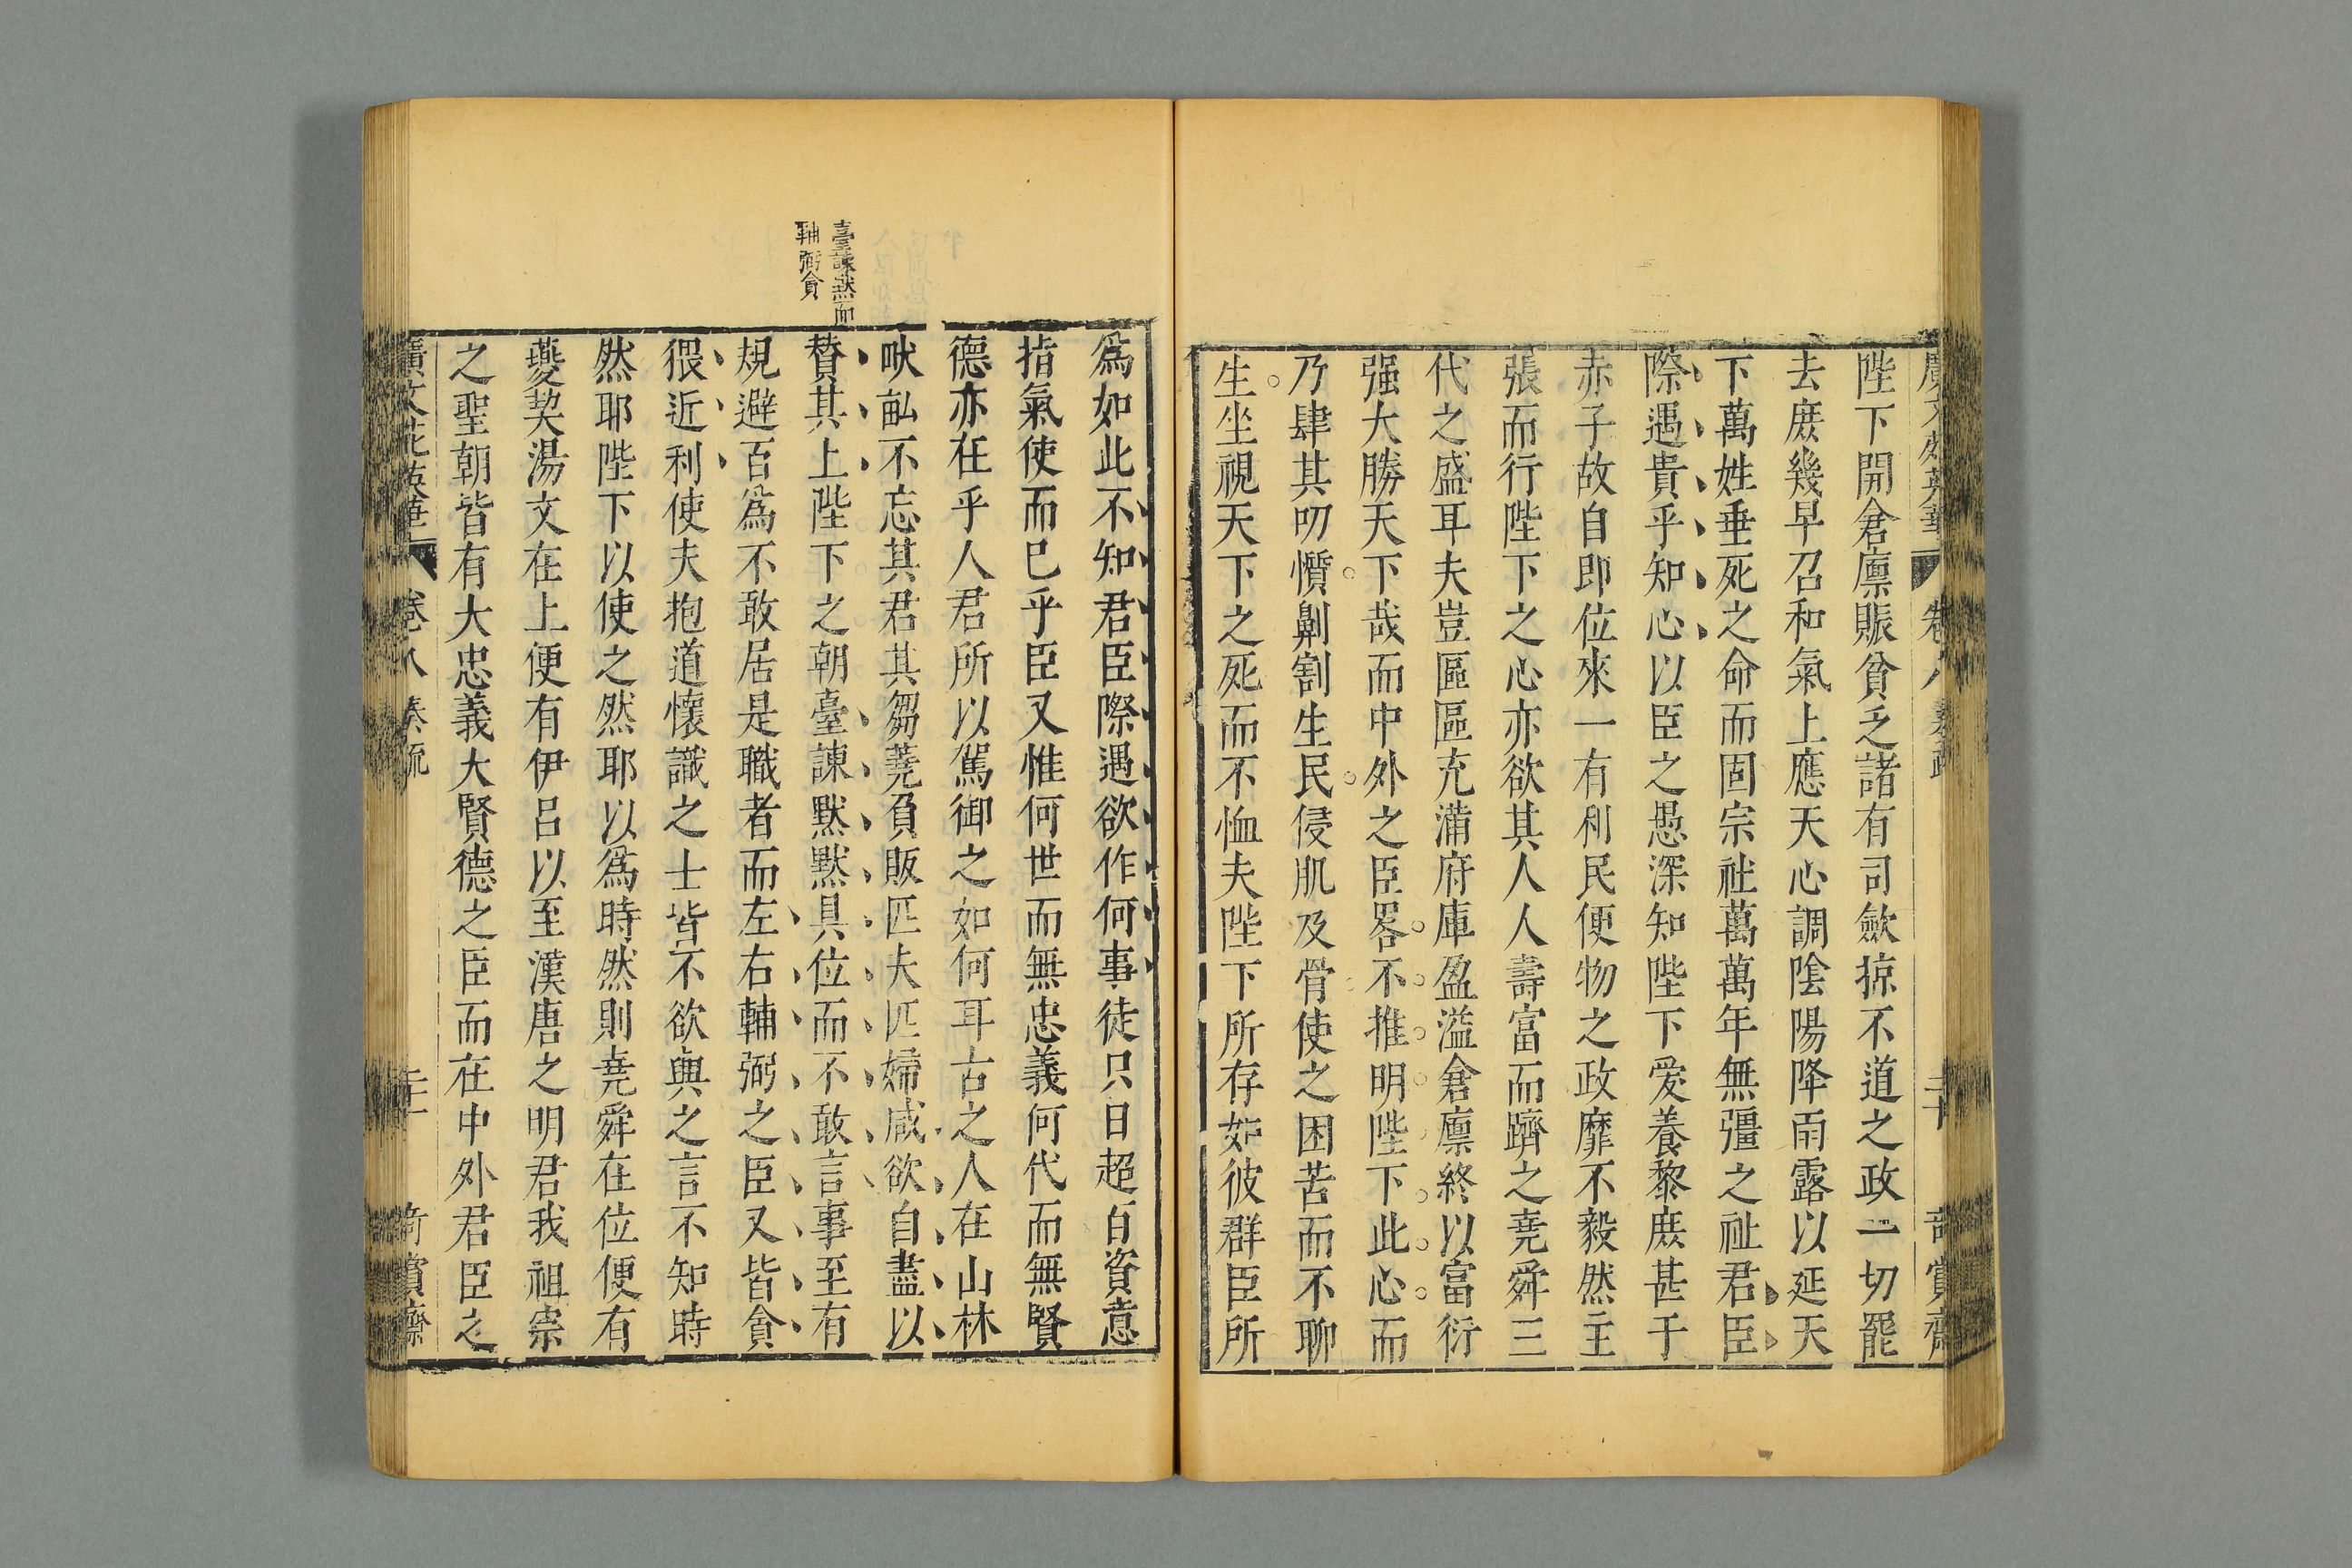 陛下開倉廪賑貧乏諸有司歛掠不道之政一切罷
去庻幾早召和氣上應天心調陰陽降雨露以延天
下萬姓垂死之命而固宗社萬萬年無彊之祉君臣
際遇貴乎知心以臣之愚深知陛下愛養黎庻甚于
赤子故自即位來一有利民便物之政靡不毅然主
張而行陛下之心亦欲其人人壽富而躋之堯舜三
代之盛耳夫豈區區充滿府庫盈溢倉廪終以富衍
强大勝天下哉而中外之臣畧不推明陛下此心而
乃肆其叨懫劓割生民侵肌及骨使之困苦而不聊
生坐視天下之死而不恤夫陛下所存如彼群臣所
臺諫默而
輔弼貪
爲如此不知君臣際遇欲作何事徒只日超百資意
指氣使而已乎臣又惟何世而無忠義何代而無賢
德亦在乎人君所以駕御之如何耳古之人在山林
畎畝不忘其君其芻蕘負販匹夫匹婦咸欲自盡以
賛其上陛下之朝臺諫默默具位而不敢言事至有
規避百爲不敢居是職者而左右輔弼之臣又皆貪
猥近利使夫抱道懷識之士皆不欲與之言不知時
然耶陛下以使之然耶以爲時然則堯舜在位便有
夔契湯文在上便有伊呂以至漢唐之明君我祖宗
之聖朝皆有大忠義大賢德之臣而在中外君臣之
廣文苑英華 卷八 奏疏